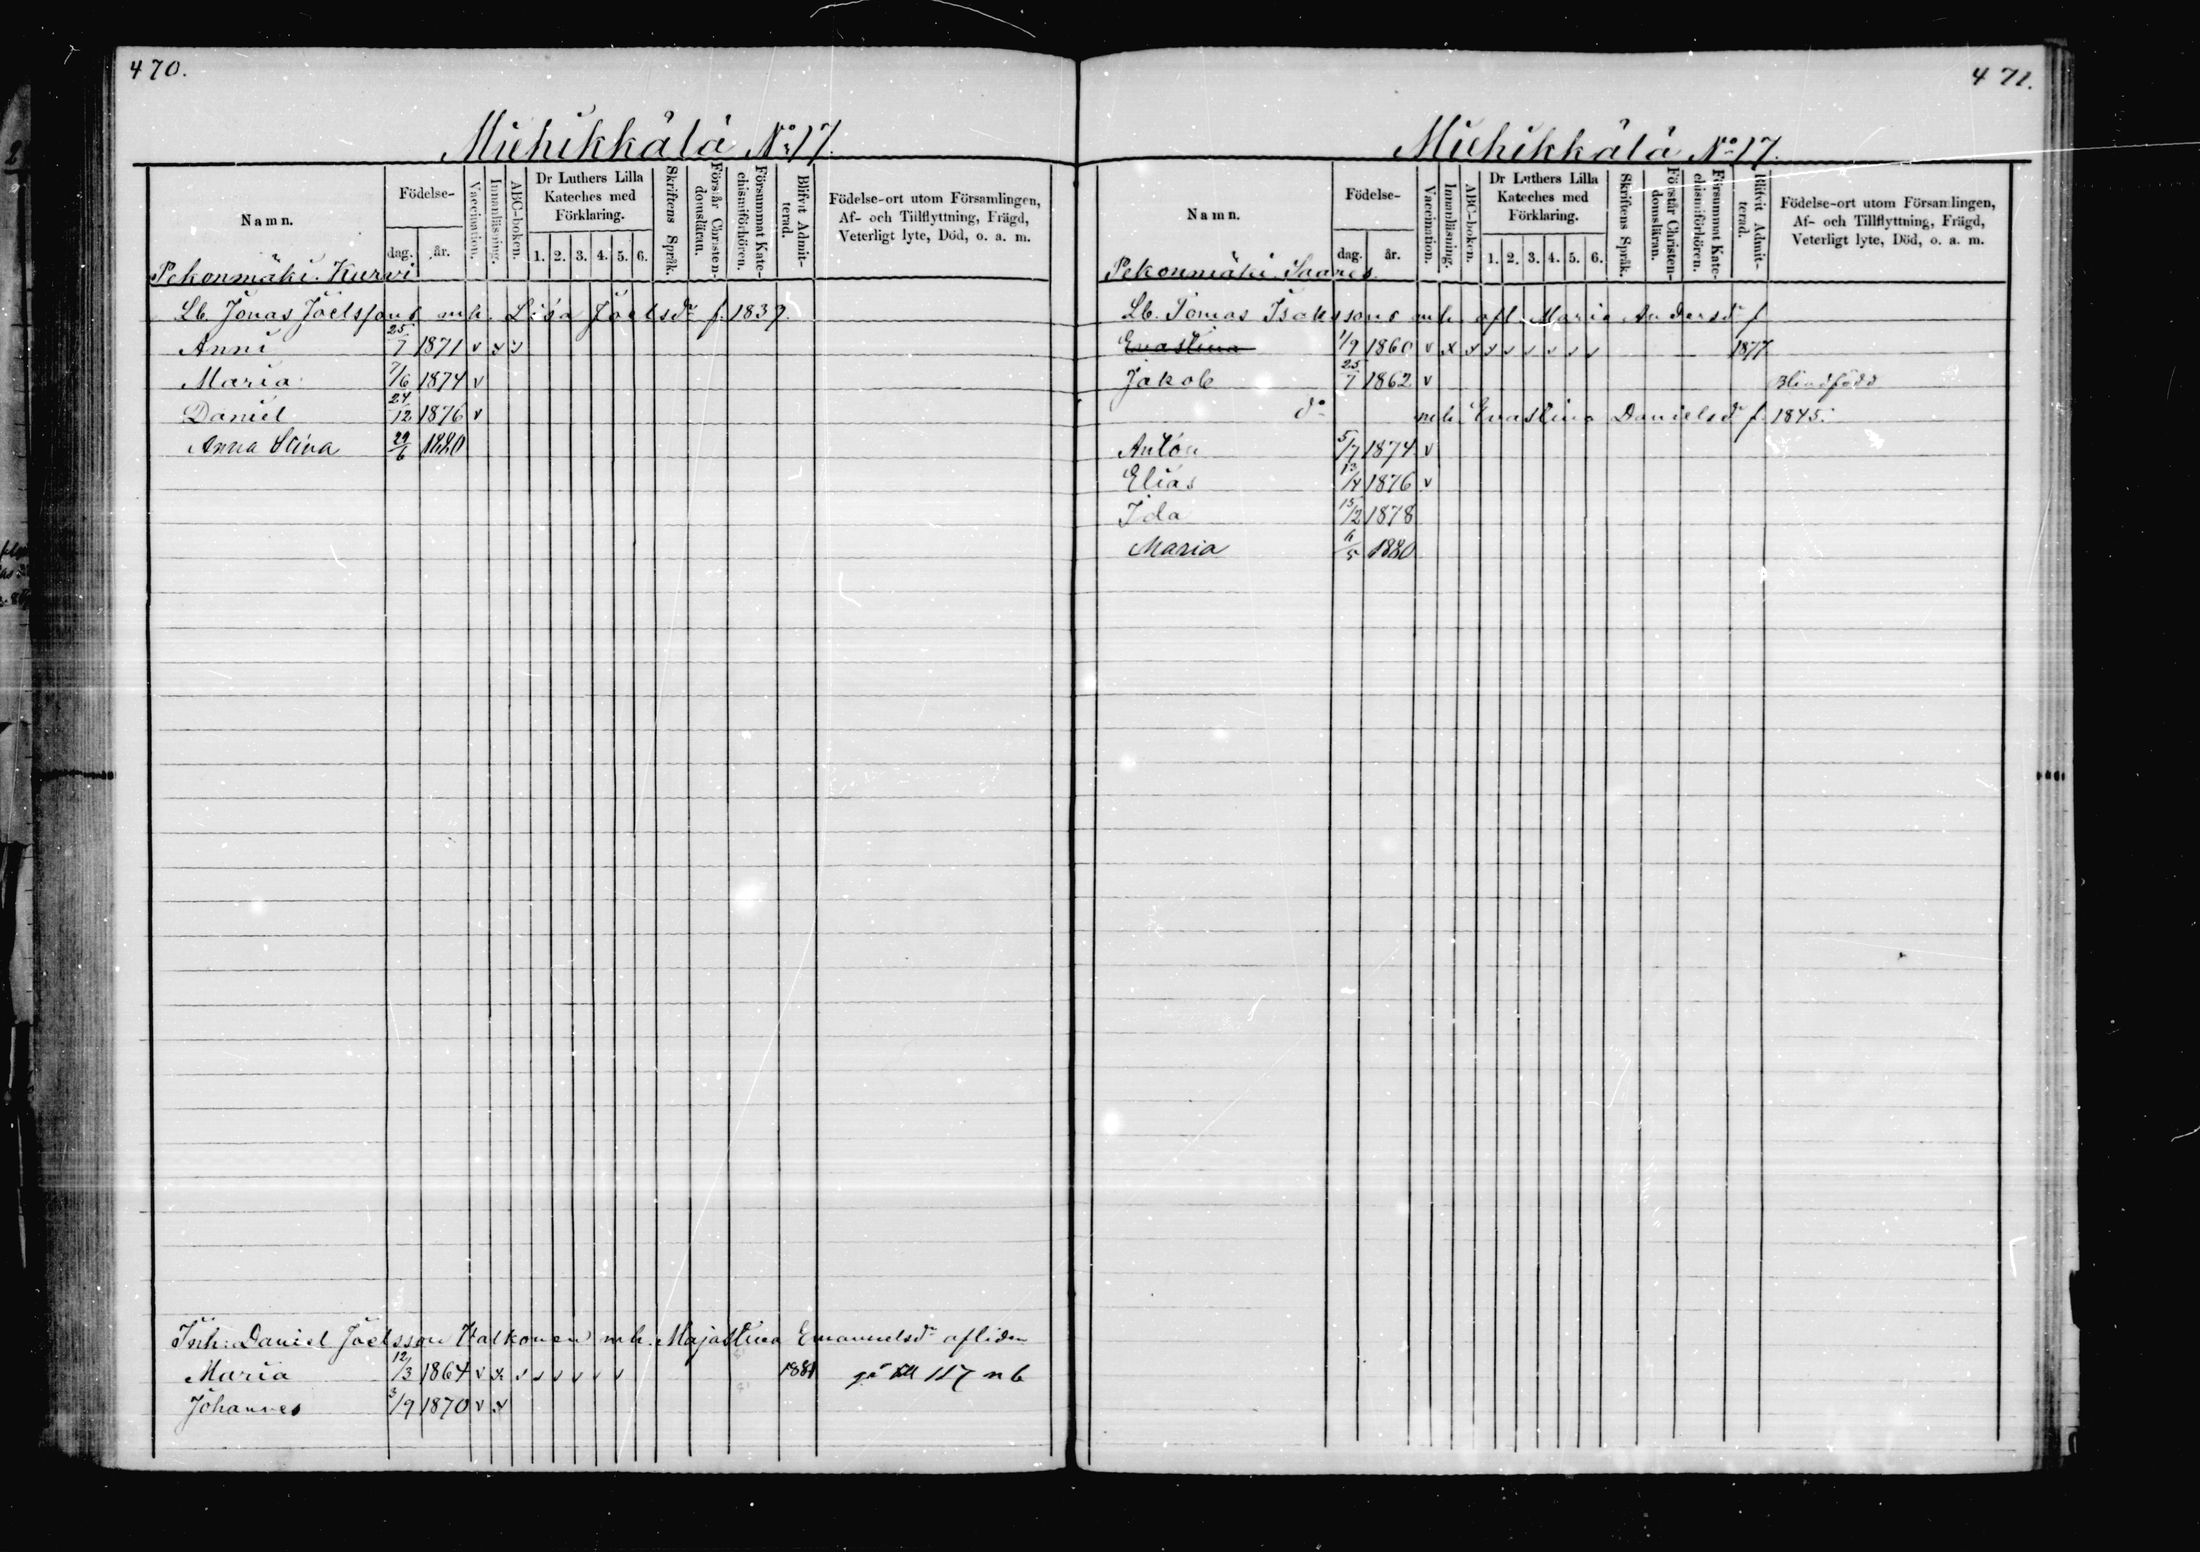 470.
Miehikkälä No 17.
Namn.
Födelse-
dag.
år.
Vaccination.
Innanläsning.
ABC-boken.
Dr Luthers Lilla
Kateches med
Förklaring.
1. 2. 3. 4. 5. 6.
Skriftens Språk.
Förstår Christen-
domsläran.
Försummat Kate-
chismiförhören.
Blifvit Admit-
terad.
Födelse-ort utom Församlingen,
Af- och Tillflyttning, Frägd,
Veterligt lyte, Död, o. a. m.
Pekonmäki Kurvi
Lb. Jonas Joelssons m.h. Lisa Joelsdr f. 1839.
Anni 25/7 1871 v x v
Maria 7/6 1874 v
Daniel 24/12 1876 v
Anna Stina 29/6 1880
Inh: Daniel Joelsson Halkonen m.h. Maja Stina Emanuelsdr afliden
Maria 12/3 1864 v x v v v v v v 1881 gå till 117 n b
Johannes 3/9 1870 v x
471.
Miehikkälä No 17.
Namn.
Födelse-
dag.
år.
Vaccination.
Innanläsning.
ABC-boken.
Dr Luthers Lilla
Kateches med
Förklaring.
1. 2. 3. 4. 5. 6.
Skriftens Språk.
Förstår Christen-
domsläran.
Försummat Kate-
chismiförhören.
Blifvit Admit-
terad.
Födelse-ort utom Församlingen,
Af- och Tillflyttning, Frägd,
Veterligt lyte, Död, o. a. m.
Pekonmäki Saares
Lb. Tomas Isakssons m.h. afl. Maria Andersdr f
Evastina 1/9 1860 v x x v v v v v v 1877
Jakob 25/7 1862 v Blindfödd
do m.h. Evastina Danielsdr f. 1845.
Anton 5/7 1874 v
Elias 13/4 1876 v
Ida 15/2 1878
Maria 11/5 1880